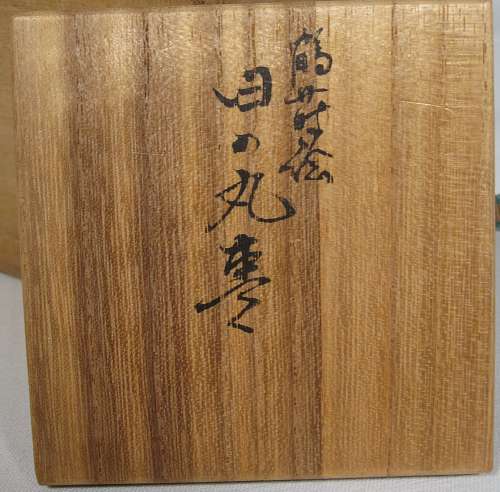 鶴蒔絵
日の丸棗